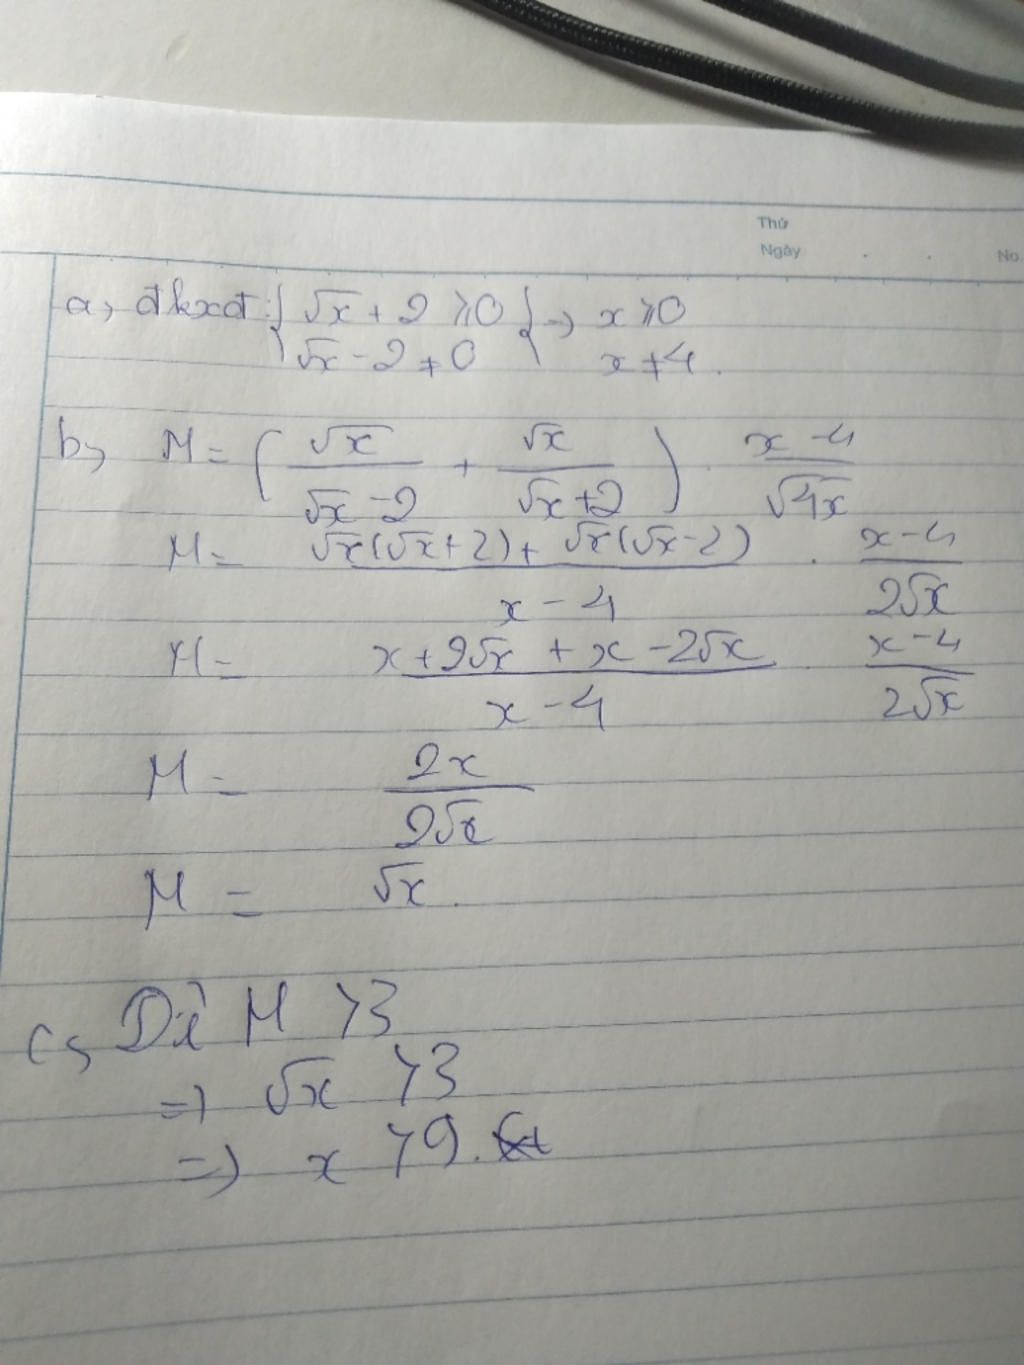 Thứ
Ngày . . No.
a, đkxđ: { √x + 2 ≥ 0 } => x ≥ 0
√x - 2 ≠ 0 x ≠ 4.
b, M = ( √x / √x - 2 + √x / √x + 2 ) . x - 4 / √4x
M = √x(√x + 2) + √x(√x - 2) / x - 4 . x - 4 / 2√x
M = x + 2√x + x - 2√x / x - 4 . x - 4 / 2√x
M = 2x / 2√x
M = √x.
c, Để M > 3
=> √x > 3
=> x > 9.